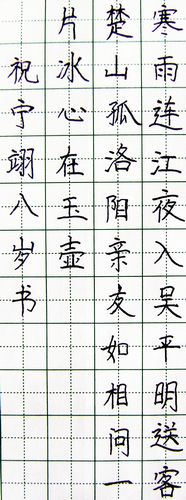 寒雨连江夜入吴平明送客
楚山孤洛阳亲友如相问一
片冰心在玉壶
祝宁翊八岁书